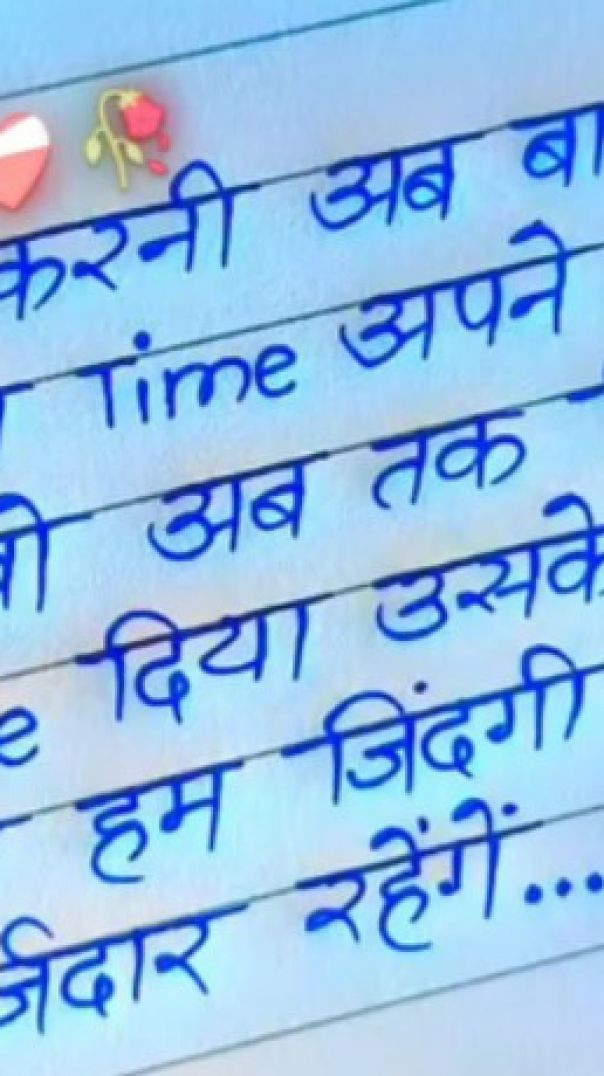 करनी अब
Time अपने
अब तक
दिया उसके
हम जिंदगी
र्जदार रहेंगें...